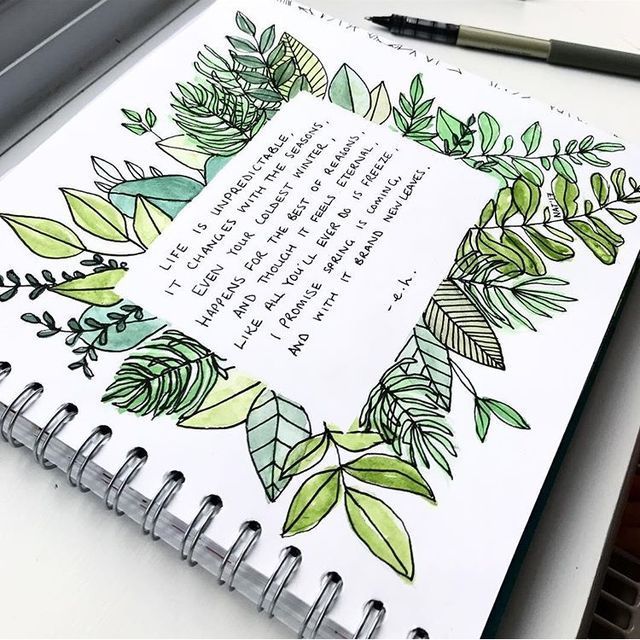 LIFE IS UNPREDICTABLE,
IT CHANGES WITH THE SEASONS,
EVEN YOUR COLDEST WINTER,
HAPPENS FOR THE BEST OF REASONS,
AND THOUGH IT FEELS ETERNAL,
LIKE ALL YOU'LL EVER DO IS FREEZE,
I PROMISE SPRING IS COMING,
AND WITH IT BRAND NEW LEAVES.
-e.h.